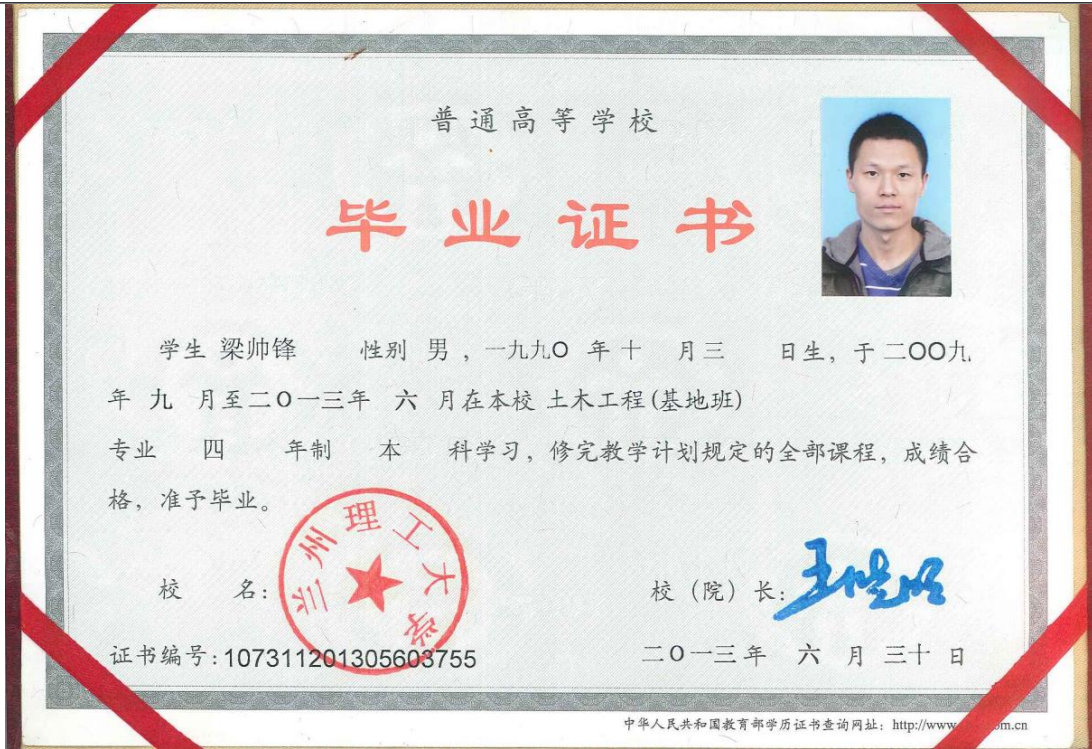 普通高等学校
毕业证书
学生 梁帅锋 性别 男 ，一九九O 年 十 月 三 日生，于 二OO九
年 九 月至二O一三年 六 月在本校 土木工程(基地班)
专业 四 年制 本 科学习，修完教学计划规定的全部课程，成绩合
格，准予毕业。
兰州理工大学
校 名：
校（院）长：
证书编号：107311201305603755
二O一三年 六 月 三十 日
中华人民共和国教育部学历证书查询网址：http://www
om.cn